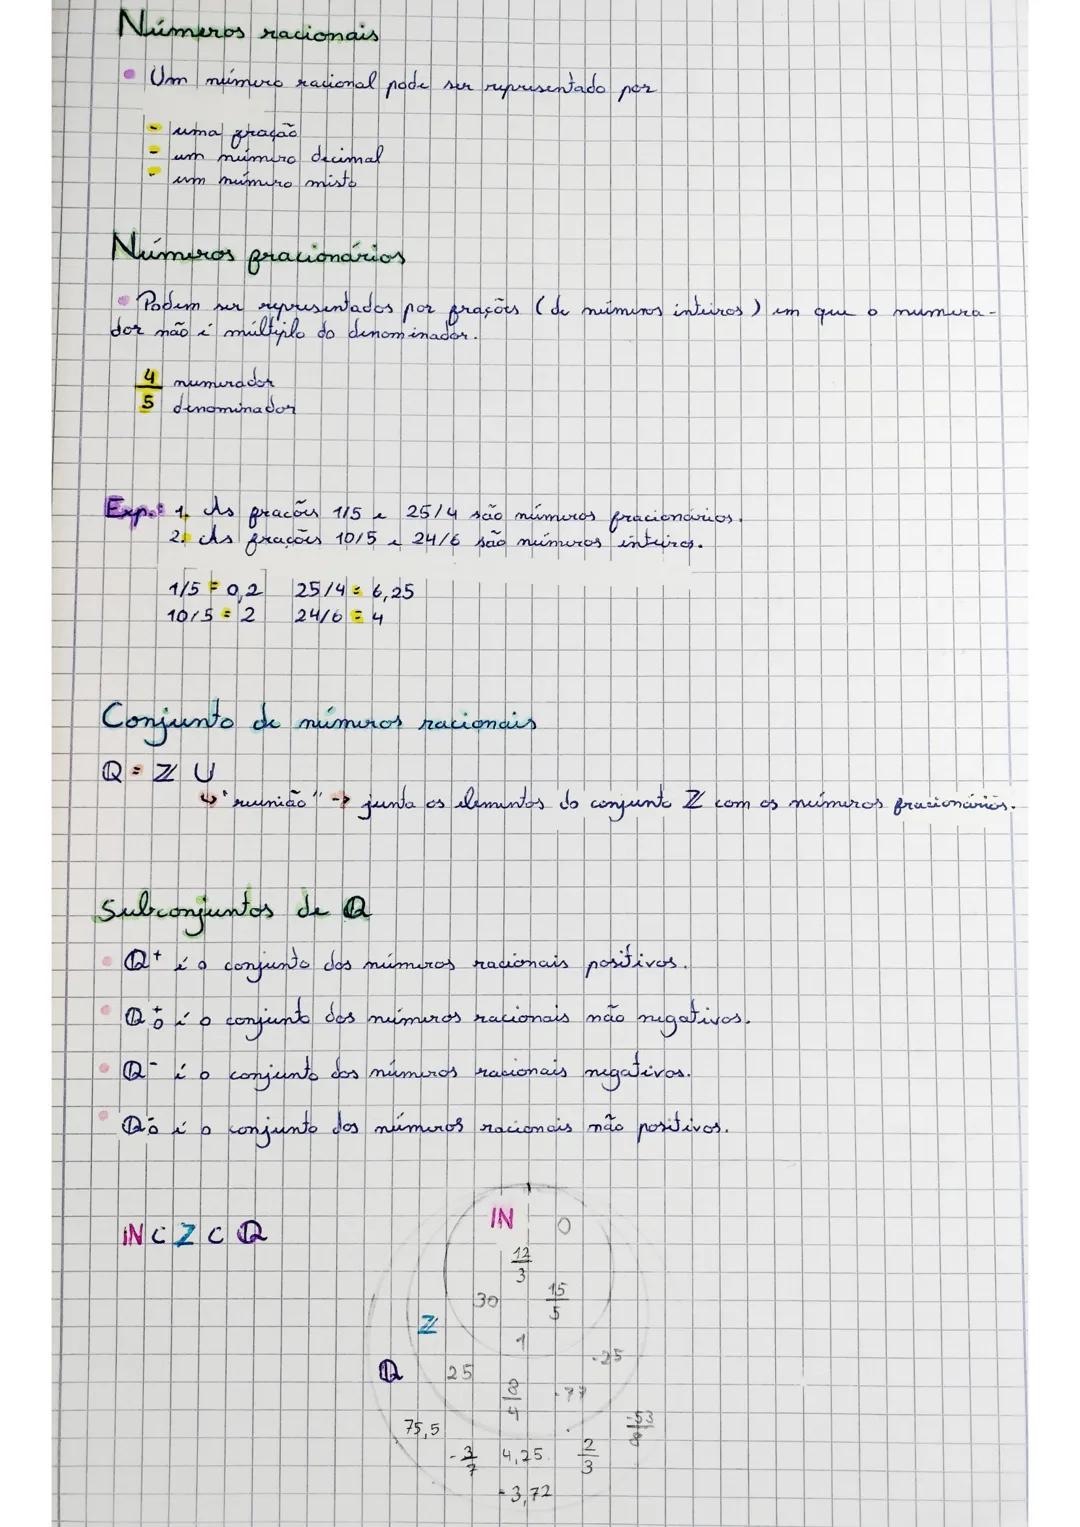 Números racionais
Um número racional pode ser representado por
- uma fração
- um número decimal
- um número misto
Números fracionários
Podem ser representados por frações (de números inteiros) em que o numera-
dor não é múltiplo do denominador.
4 numerador
5 denominador
Exp.: 1. As frações 1/5 e 25/4 são números fracionários.
2. As frações 10/5 e 24/6 são números inteiros.
1/5 = 0,2 25/4 = 6,25
10/5 = 2 24/6 = 4
Conjunto de números racionais
Q = Z U
↳ "reunião" -> junta os elementos do conjunto Z com os números fracionários.
Subconjuntos de Q
Q+ é o conjunto dos números racionais positivos.
Q+0 é o conjunto dos números racionais não negativos.
Q- é o conjunto dos números racionais negativos.
Q-0 é o conjunto dos números racionais não positivos.
IN C Z C Q
IN 0
12/3
30 15/5
Z 1
Q 25 -25
8/4 -77
75,5
-3/7 4,25 2/3
-3,72